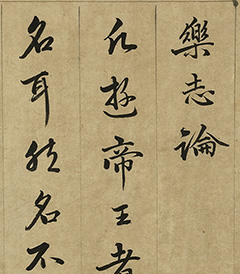 樂志論
凡遊帝王者
名耳然名不